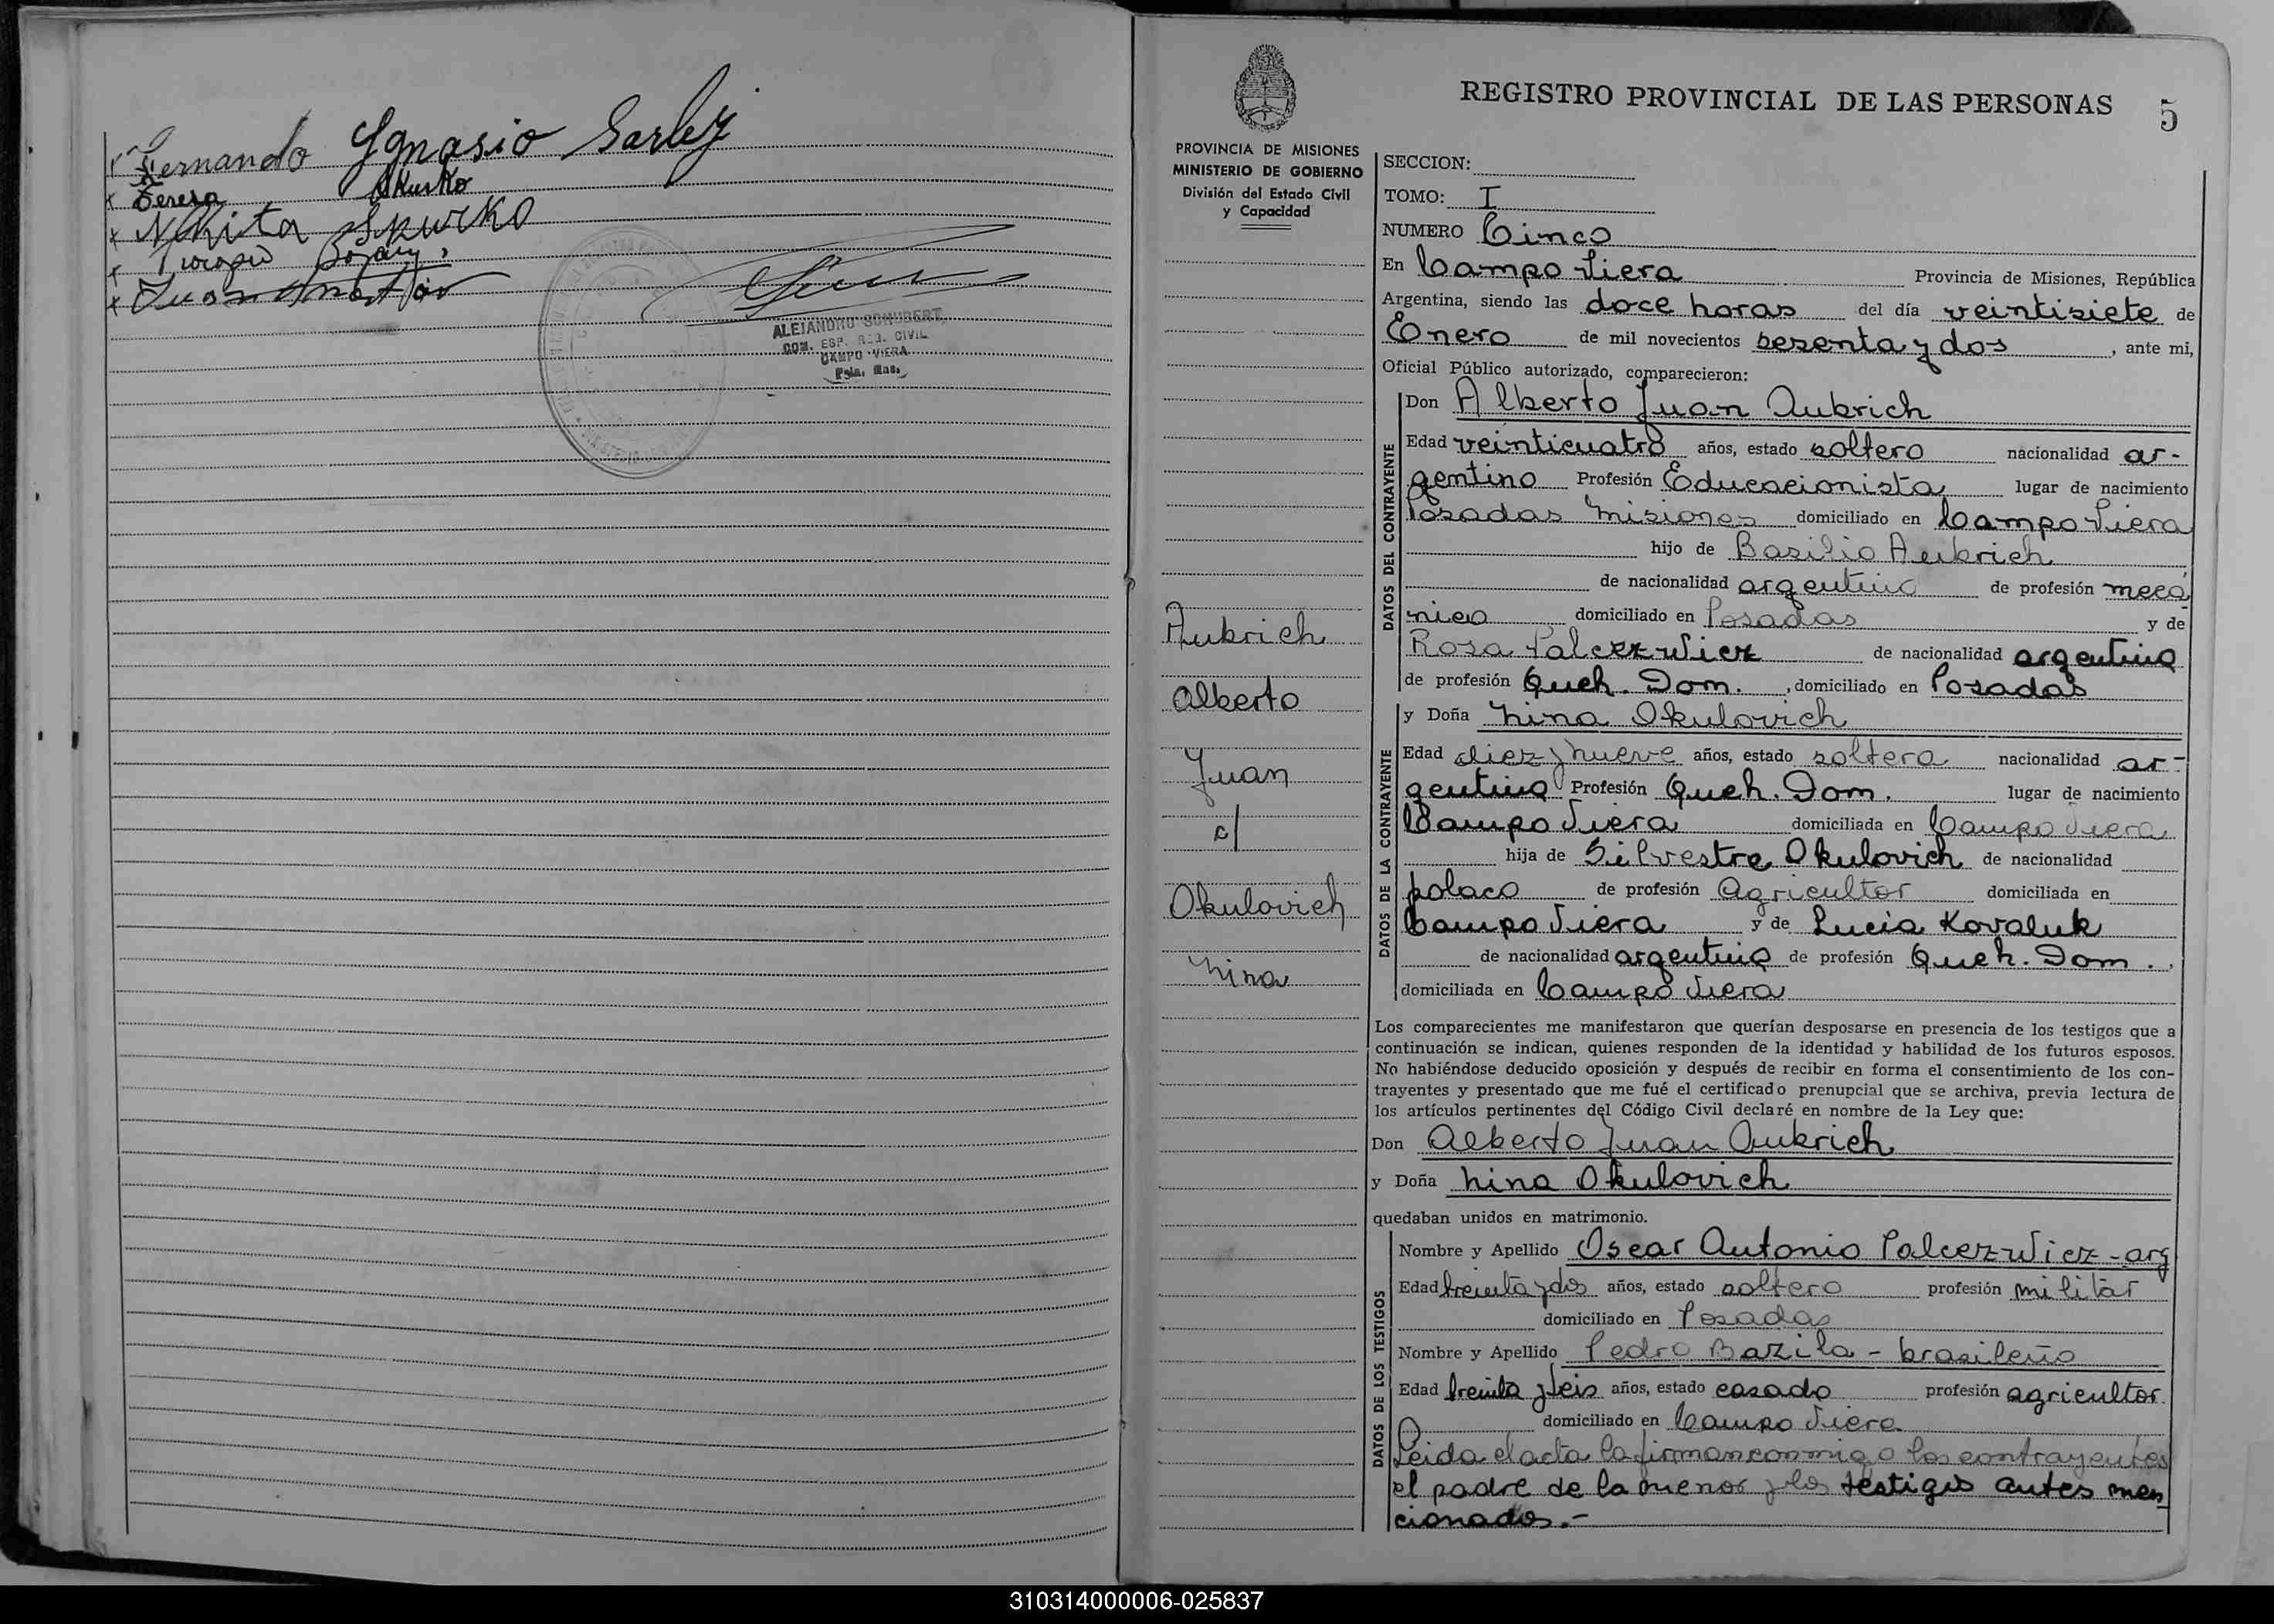 Fernando Ygnasio Sarbez
Teresa Skurko
Nikita Skurko
ALEJANDRO SCHUBERT
COM. ESP. REG. CIVIL
CAMPO VIERA
Pcia. Mns.
REGISTRO PROVINCIAL DE LAS PERSONAS
5
PROVINCIA DE MISIONES
MINISTERIO DE GOBIERNO
División del Estado Civil
y Capacidad
Aubrich
Alberto
Juan
c/
Okulovich
Nina
SECCION:
TOMO: I
NUMERO Cinco
En Campo Viera Provincia de Misiones, República
Argentina, siendo las doce horas del día veintisiete de
Enero de mil novecientos sesenta y dos, ante mi,
Oficial Público autorizado, comparecieron:
DATOS DEL CONTRAYENTE
Don Alberto Juan Aubrich
Edad veinticuatro años, estado soltero nacionalidad ar-
gentino Profesión Educacionista lugar de nacimiento
Posadas Misiones domiciliado en Campo Viera
hijo de Basilio Aubrich,
de nacionalidad argentino de profesión mecá
nico domiciliado en Posadas y de
Rosa Palcezwicz de nacionalidad argentina
de profesión Queh. Dom., domiciliado en Posadas
DATOS DE LA CONTRAYENTE
y Doña Nina Okulovich
Edad diez y nueve años, estado soltera nacionalidad ar-
gentina Profesión Queh. Dom. lugar de nacimiento
Campo Viera domiciliada en Campo Viera
hija de Silvestre Okulovich de nacionalidad
polaco de profesión Agricultor domiciliada en
Campo Viera y de Lucia Kovaluk
de nacionalidad argentina de profesión Queh. Dom.,
domiciliada en Campo Viera
Los comparecientes me manifestaron que querían desposarse en presencia de los testigos que a
continuación se indican, quienes responden de la identidad y habilidad de los futuros esposos.
No habiéndose deducido oposición y después de recibir en forma el consentimiento de los con-
trayentes y presentado que me fué el certificado prenupcial que se archiva, previa lectura de
los artículos pertinentes del Código Civil declaré en nombre de la Ley que:
Don Alberto Juan Aubrich
y Doña Nina Okulovich
quedaban unidos en matrimonio.
DATOS DE LOS TESTIGOS
Nombre y Apellido Oscar Antonio Palcezwicz - arg
Edad treinta y dos años, estado soltero profesión militar
domiciliado en Posadas
Nombre y Apellido Pedro Bazila - brasileño
Edad treinta y seis años, estado casado profesión agricultor
domiciliado en Campo Viera
Leida el acta la firman conmigo los contrayentes
el padre de la menor y los testigos antes men
cionados.-
310314000006-025837